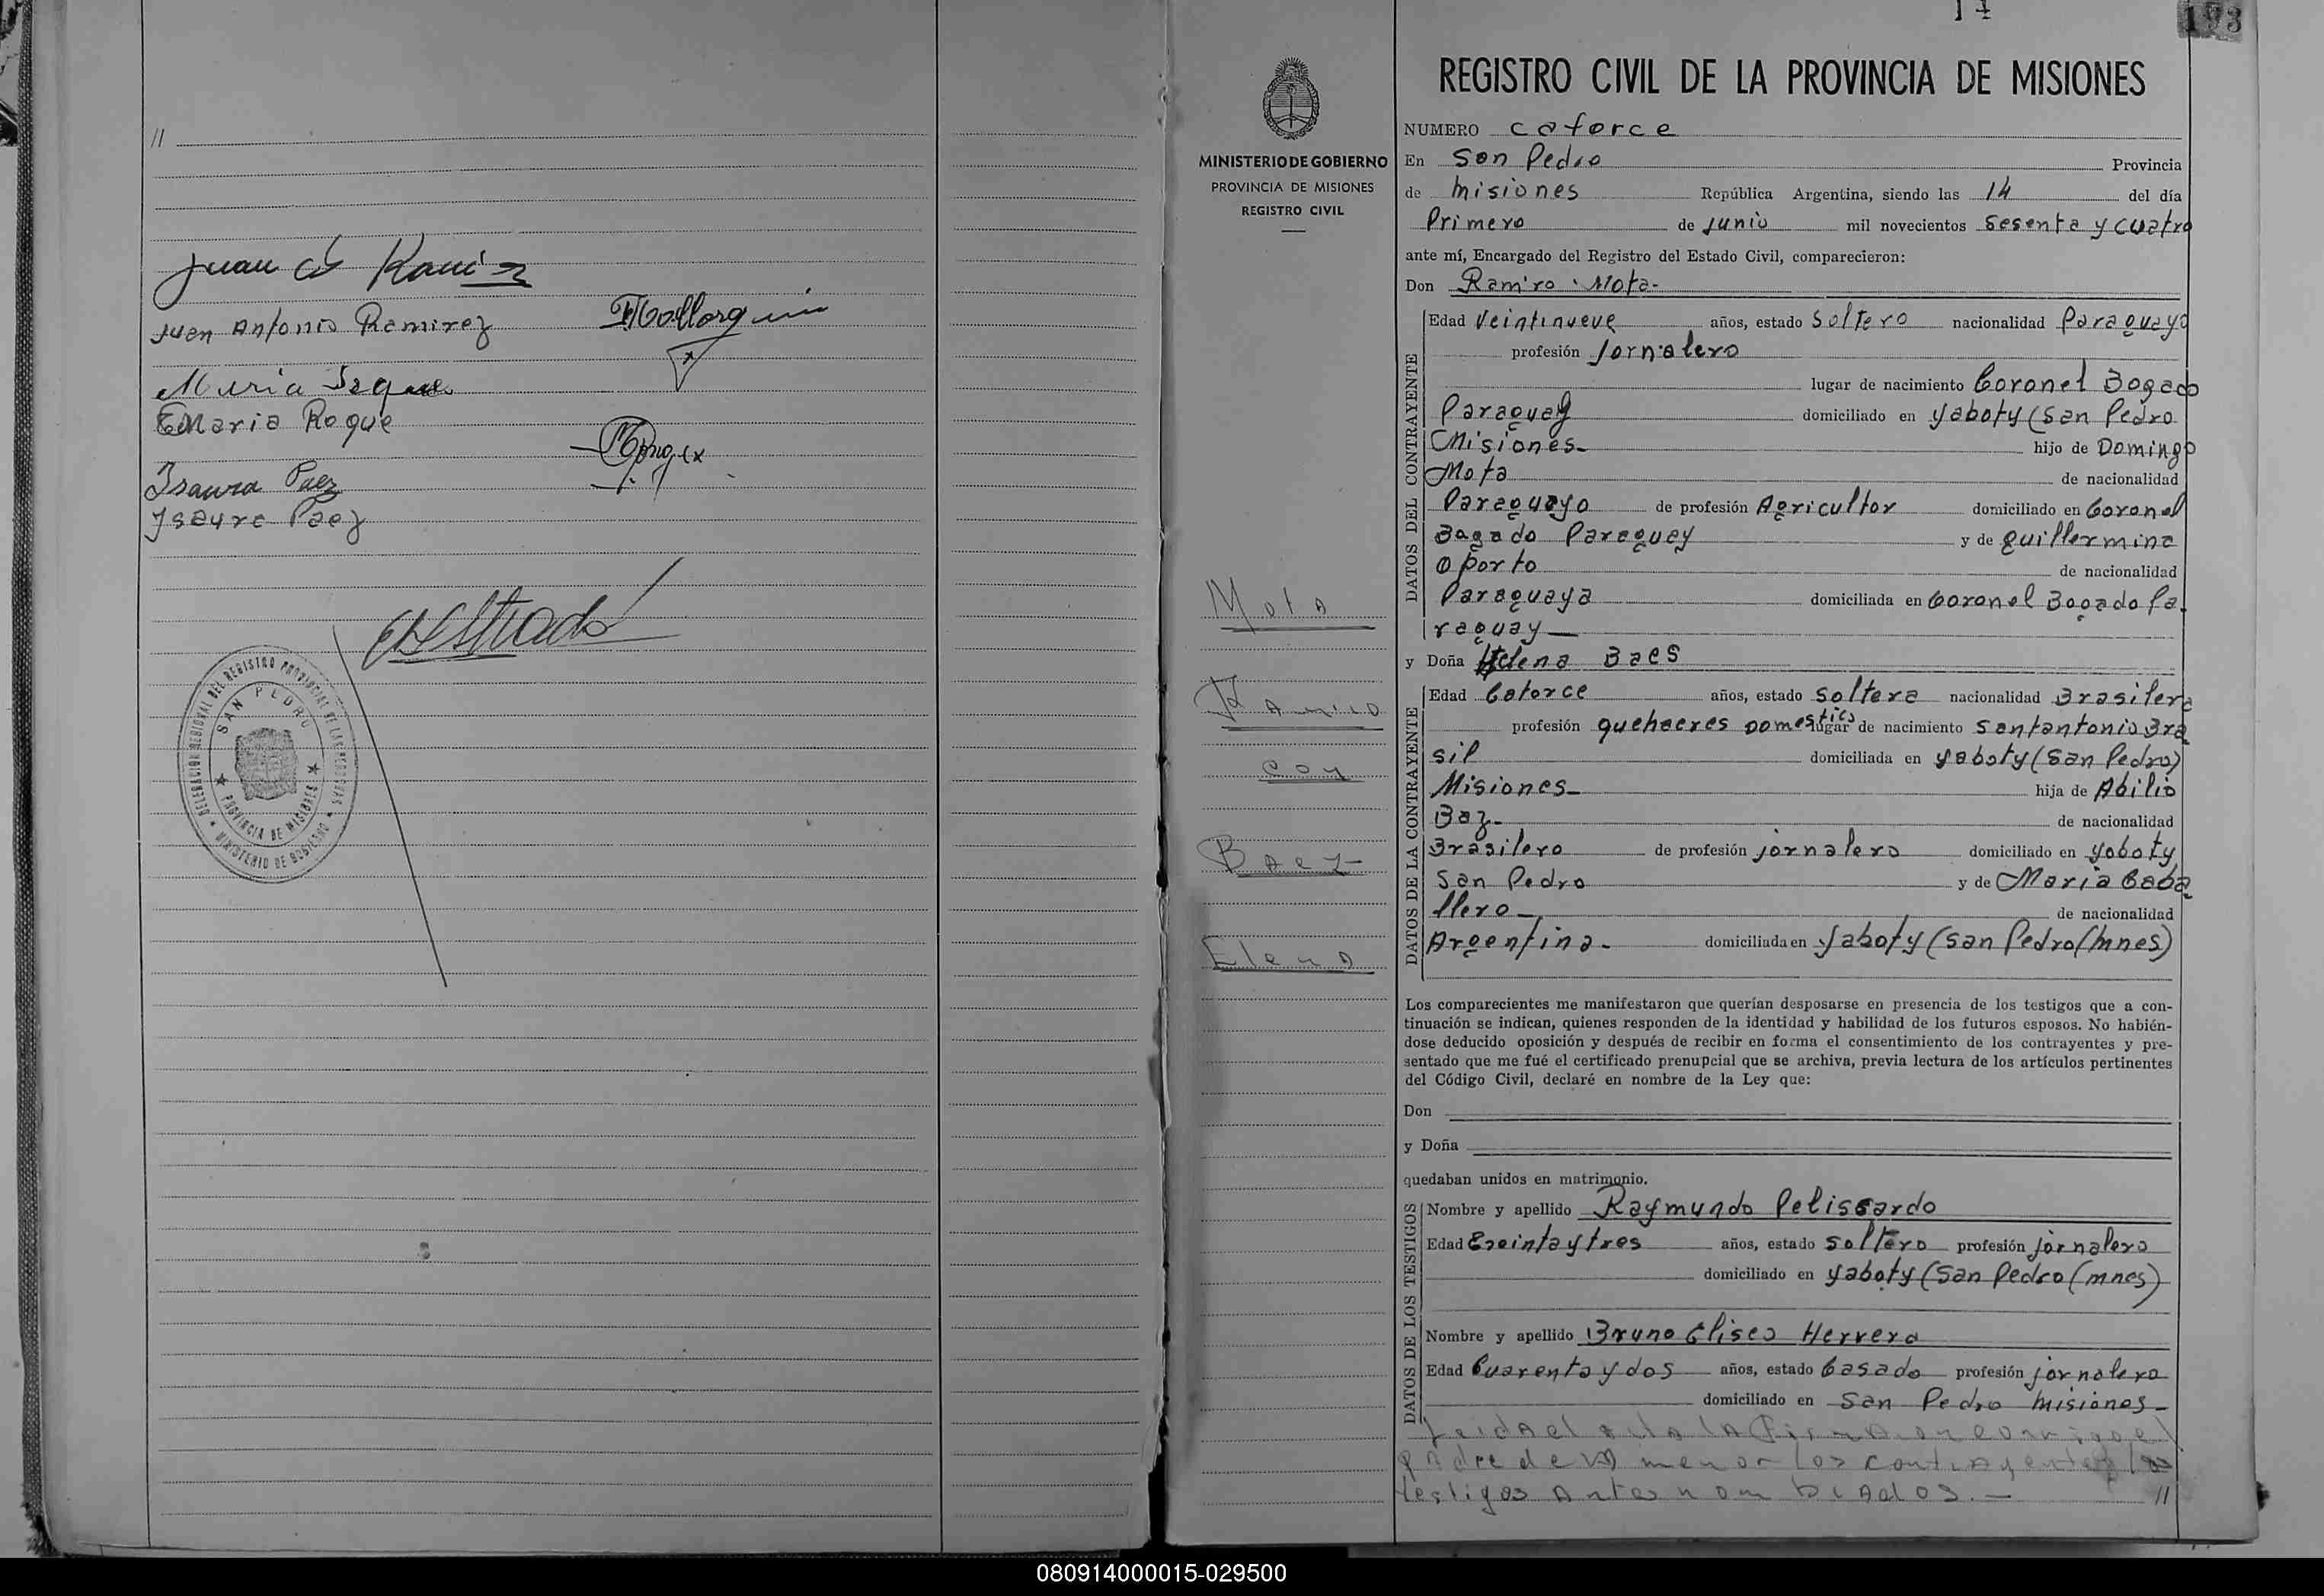 //
Juan A Ramirez
Juan Antonio Ramirez
Maria Roque
Isaura Paez
Isaura Paez
DELEGACION REGIONAL DEL REGISTRO PROVINCIAL DE LAS PERSONAS
SAN PEDRO
PROVINCIA DE MISIONES
MINISTERIO DE GOBIERNO
193
MINISTERIO DE GOBIERNO
PROVINCIA DE MISIONES
REGISTRO CIVIL
Mota
Ramiro
con
Baez
Elena
REGISTRO CIVIL DE LA PROVINCIA DE MISIONES
NUMERO catorce
En San Pedro Provincia
de Misiones República Argentina, siendo las 14 del día
Primero de junio mil novecientos sesenta y cuatro
ante mí, Encargado del Registro del Estado Civil, comparecieron:
Don Ramiro Mota-
DATOS DEL CONTRAYENTE
Edad Veintinueve años, estado Soltero nacionalidad Paraguayo
profesión Jornalero
lugar de nacimiento Coronel Bogado
Paraguay domiciliado en Yaboty (San Pedro
Misiones- hijo de Domingo
Mota de nacionalidad
Paraguayo de profesión Agricultor domiciliado en Coronel
Bogado Paraguay y de Guillermina
Oporto de nacionalidad
Paraguaya domiciliada en Coronel Bogado Pa-
raguay-
y Doña Helena Baes
DATOS DE LA CONTRAYENTE
Edad Catorce años, estado Soltera nacionalidad Brasilera
profesión quehaceres Domesticos lugar de nacimiento Santantonio Bra
sil domiciliada en Yaboty (San Pedro)
Misiones- hija de Abilio
Baz- de nacionalidad
Brasilero de profesión jornalero domiciliado en Yaboty
San Pedro y de Maria Caba
llero- de nacionalidad
Argentina- domiciliada en Yaboty (San Pedro (Mnes)
Los comparecientes me manifestaron que querían desposarse en presencia de los testigos que a con-
tinuación se indican, quienes responden de la identidad y habilidad de los futuros esposos. No habién-
dose deducido oposición y después de recibir en forma el consentimiento de los contrayentes y pre-
sentado que me fué el certificado prenupcial que se archiva, previa lectura de los artículos pertinentes
del Código Civil, declaré en nombre de la Ley que:
Don
y Doña
quedaban unidos en matrimonio.
DATOS DE LOS TESTIGOS
Nombre y apellido Raymundo Pelissardo
Edad Treinta y tres años, estado soltero profesión jornalero
domiciliado en Yaboty (San Pedro (mnes)
Nombre y apellido Bruno Eliseo Herrera
Edad Cuarenta y dos años, estado Casado profesión jornalero
domiciliado en San Pedro Misiones-
Leida el acta la firman conmigo el
padre de la menor los contrayentes los
testigos antes nombrados.- //
080914000015-029500